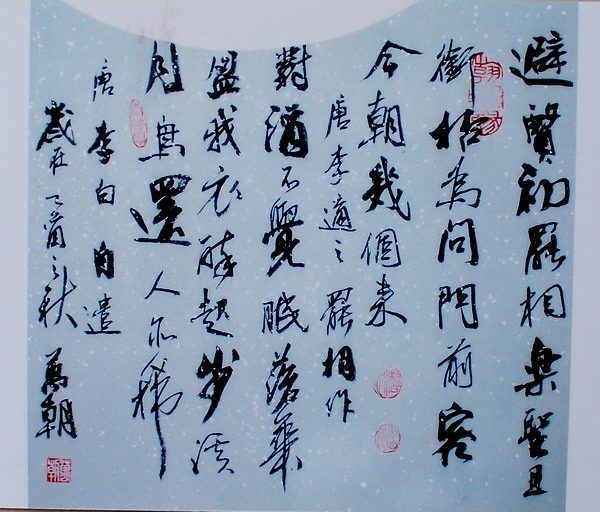 避賢初罷相樂聖且
銜杯為問門前客
今朝幾個來
唐李適之罷相作
對酒不覺眠落華
盈我衣醉起步溪
月鳥還人亦稀
唐李白自遣
歲在乙酉之秋萬朝